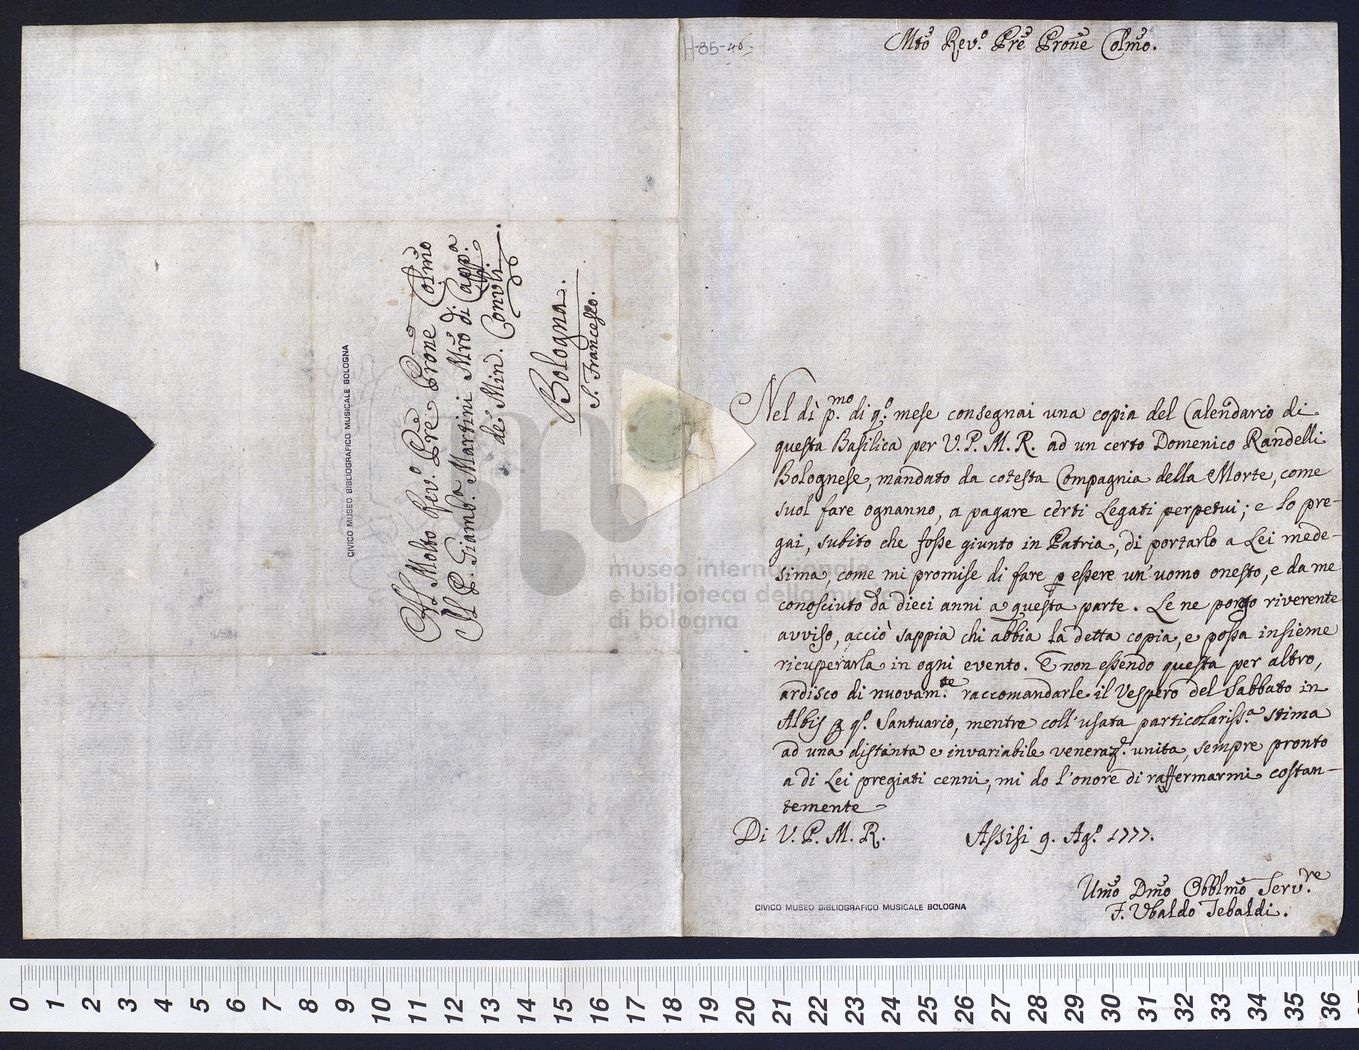 H-85-46.
Mto Rev.o Pre Prone Colmo.
Nel dì p.mo di q.o mese consegnai una copia del Calendario di
questa Basilica per V. P. M. R. ad un certo Domenico Randelli
Bolognese, mandato da cotesta Compagnia della Morte, come
suol fare ognanno, a pagare certi Legati perpetui; e lo pre-
gai, subito che fosse giunto in Patria, di portarlo a Lei mede-
sima, come mi promise di fare p essere un'uomo onesto, e da me
conosciuto da dieci anni a questa parte. Le ne porgo riverente
avviso, acciò sappia chi abbia la detta copia, e possa insieme
ricuperarla in ogni evento. E non essendo questa per altro,
ardisco di nuovam.te raccomandarle il Vespero del Sabbato in
Albis p q.o Santuario, mentre coll'usata particolariss.a stima
ad una distanta e invariabile veneraz.e unita, sempre pronto
a di Lei pregiati cenni, mi do l'onore di raffermarmi costan-
temente
Di V. P. M. R.
Assisi 9. Ag.o 1777.
Umo Dmo Obblmo Serv.re
F. Ubaldo Tebaldi.
CIVICO MUSEO BIBLIOGRAFICO MUSICALE BOLOGNA
Al Molto Rev.o Pre Prone Colmo
Il P. Giamb.a Martini Mro di Capp.a
de' Min. Conv.li
Bologna.
S. Francesco.
CIVICO MUSEO BIBLIOGRAFICO MUSICALE BOLOGNA
museo internazionale
e biblioteca della musica
di bologna
0 1 2 3 4 5 6 7 8 9 10 11 12 13 14 15 16 17 18 19 20 21 22 23 24 25 26 27 28 29 30 31 32 33 34 35 36